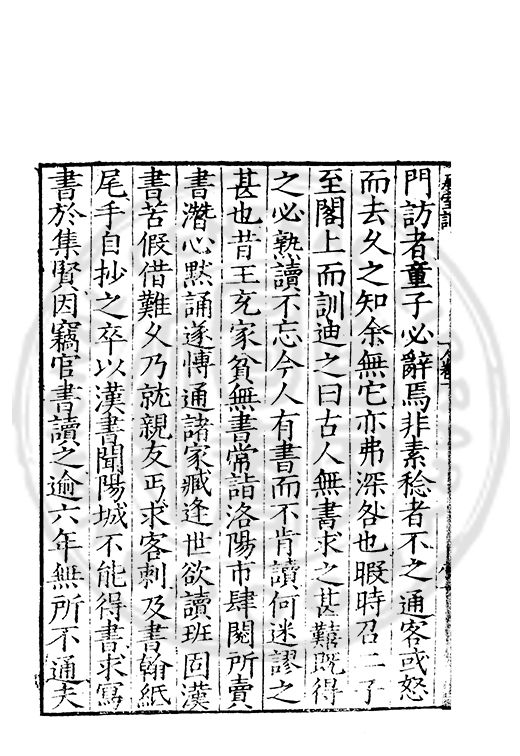 門訪者童子必辭焉非素稔者不之通客或怒
而去久之知余無它亦弗深咎也暇時召二子
至閣上而訓迪之曰古人無書求之甚難既得
之必熟讀不忘今人有書而不肯讀何迷謬之
甚也昔王充家貧無書常詣洛陽市肆閱所賣
書潛心默誦遂博通諸家臧逢世欲讀班固漢
書苦假借難久乃就親友丐求客刺及書翰紙
尾手自抄之卒以漢書聞陽城不能得書求寫
書於集賢因竊官書讀之逾六年無所不通夫